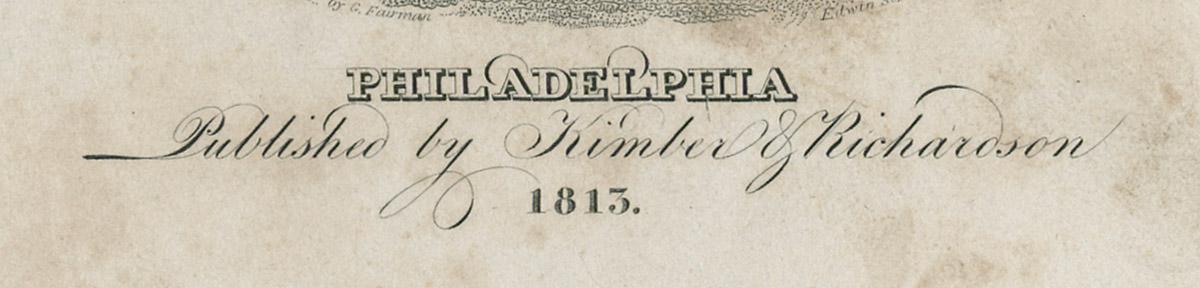 by G. Fairman Edwin
PHILADELPHIA
Published by Kimber & Richardson
1813.